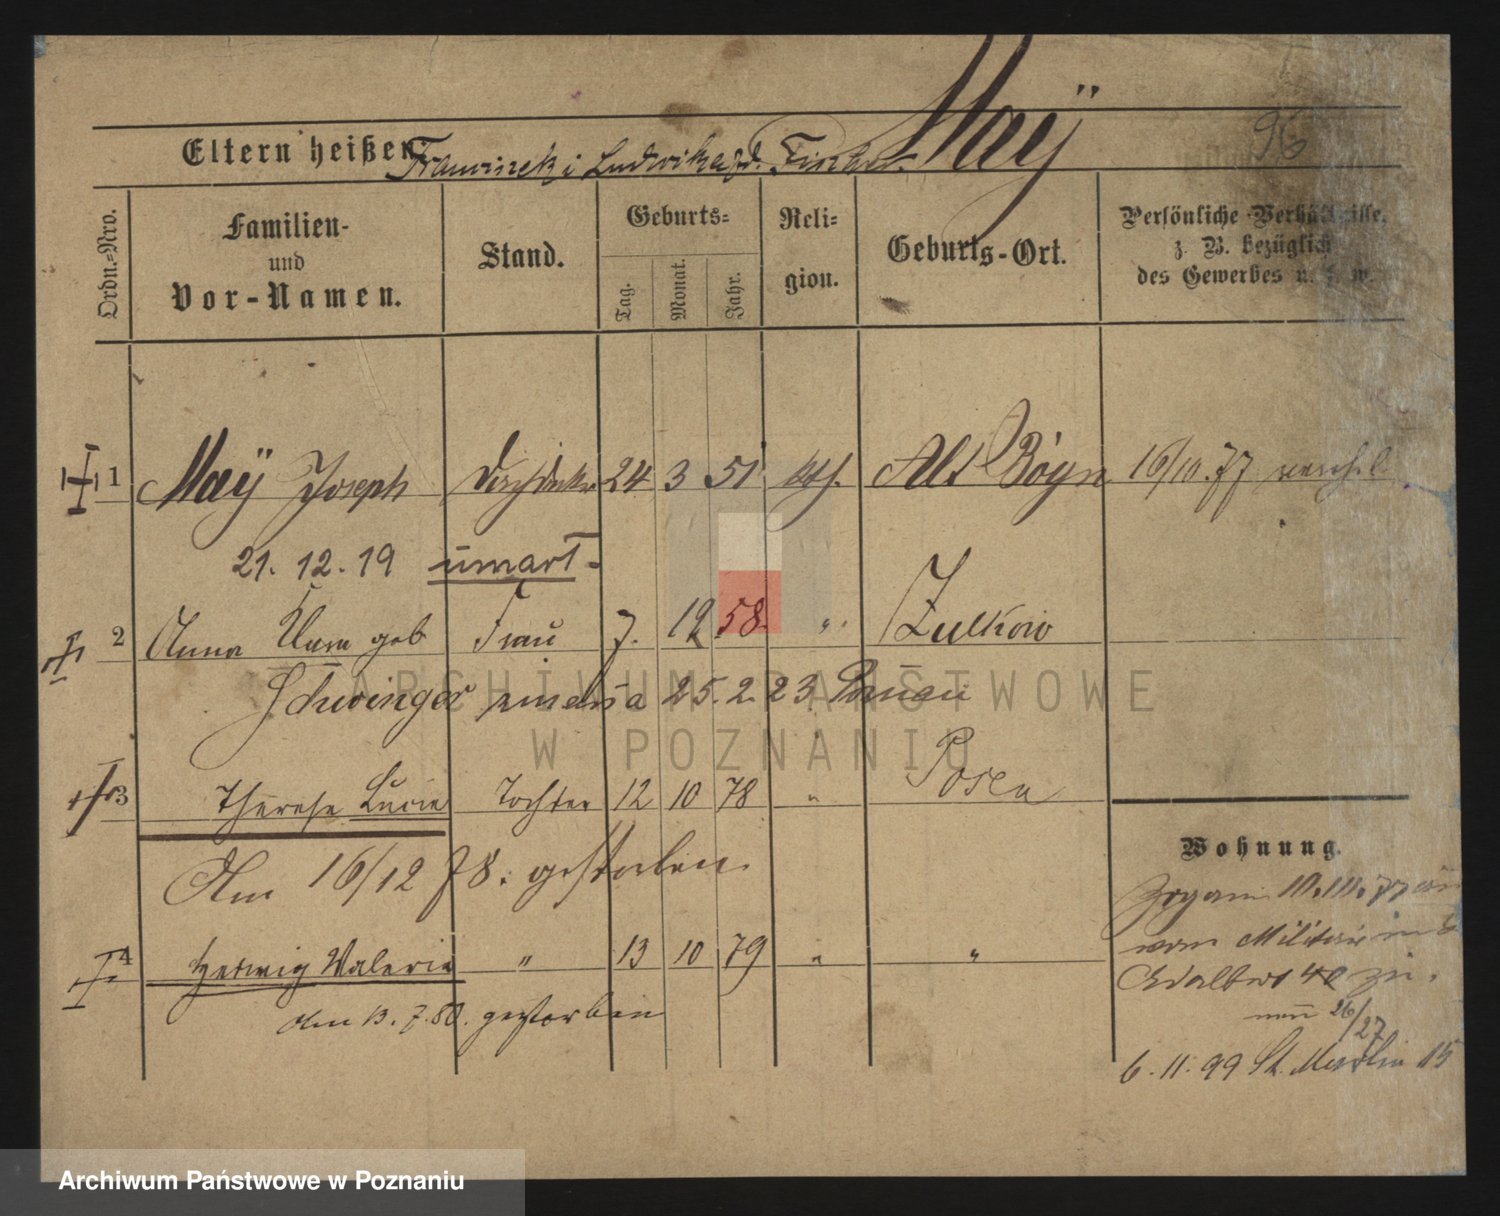 Maÿ
96
Eltern heißen: Franciszek i Ludwika gd. Fischer.
Ordn.=Nro.
Familien-
und
Vor-Namen.
Stand.
Geburts=
Tag.
Monat.
Jahr.
Reli=
gion.
Geburts-Ort.
Persönliche Verhältnisse,
z. B. bezüglich
des Gewerbes u. s. w.
1 Maÿ Joseph 24 3 51 kth. Alt 16/10.77
21. 12. 19 umarł.
2 Anna Clara geb Frau 7. 12 58. " Zulkow
Schwinger zmarła 25. 2. 23. Poznań
3 Therese Lucie Tochter 12 10 78 " Posen
Am 16/12 78. gestorben.
4 Hedwig Valerie " 13 10 79 " "
Am 13. 7. 80. gestorben
Wohnung.
vom Militair in
Adalbert 40 zu.
nun 26/27
6. 11. 99 St. Martin 15
ARCHIWUM PAŃSTWOWE
W POZNANIU
Archiwum Państwowe w Poznaniu